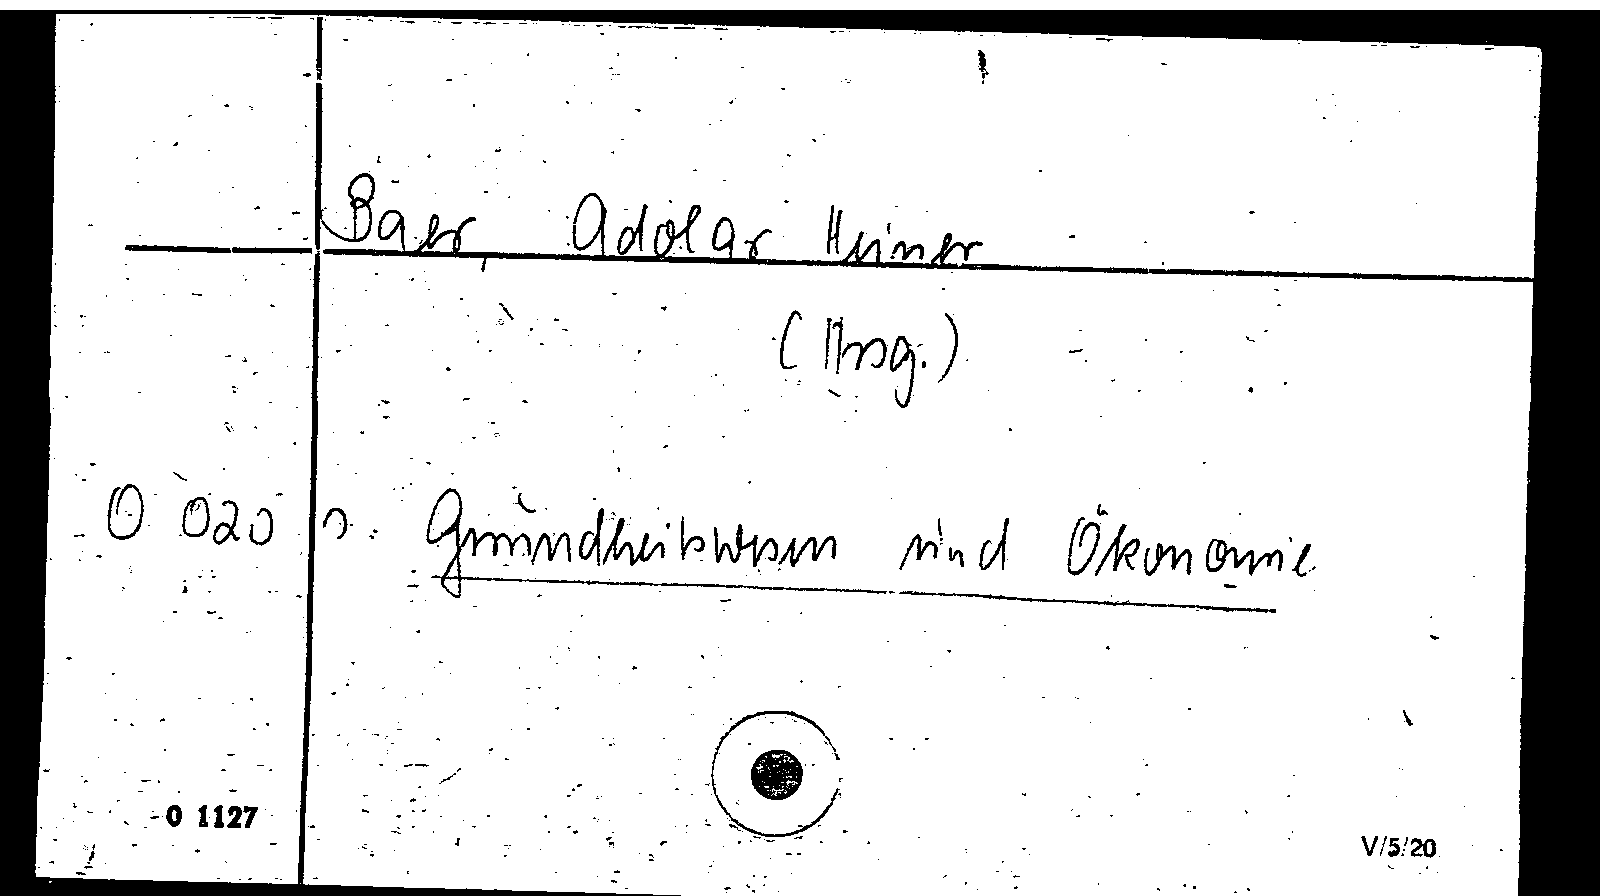 Baer Adolar Heiner
(Hrsg.)
0 020 s. Gesundheitswesen und Ökonomie
0 1127
V/5/20